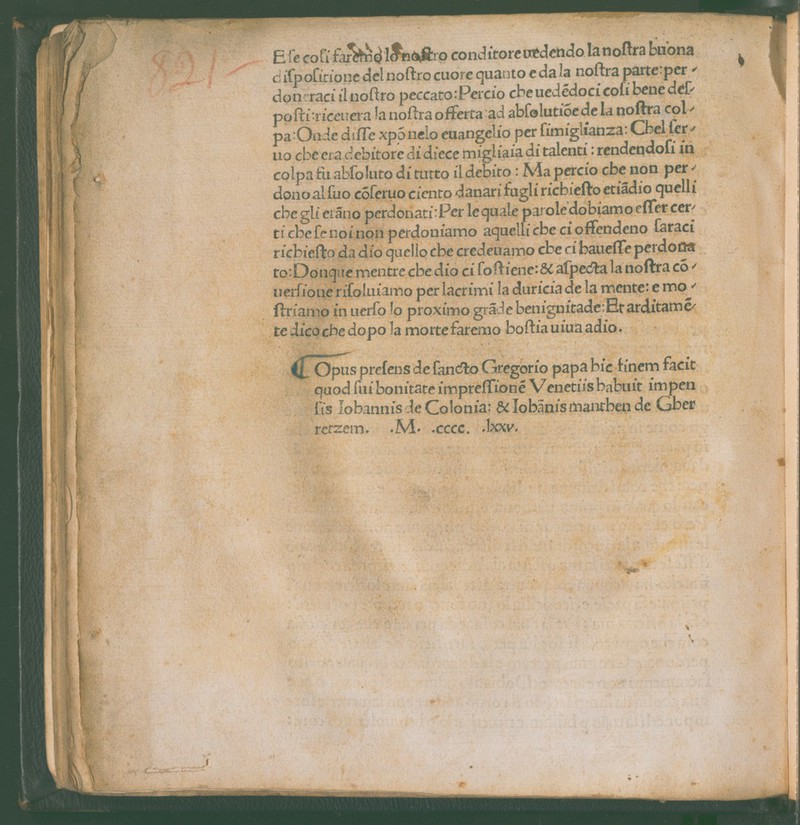 821-
E ſe coſi faremo lo noſtro conditore uedendo la noſtra buona
diſpoſitione del noſtro cuore quanto e da la noſtra parte:per-
doneraci il noſtro peccato:Percio che uedēdoci coſi bene deſ-
poſti:riceuera la noſtra offerta:ad abſolutiōe de la noſtra col-
pa:Onde diſſe xpō nelo euangelio per ſimiglianza: Chel ſer-
uo che era debitore di diece migliaia di talenti : rendendoſi in
colpa fu abſoluto di tutto il debito : Ma percio che non per-
dono al ſuo cōſeruo ciento danari fugli richieſto etiādio quelli
che gli erāno perdonati:Per le quale parole dobiamo eſſer cer-
ti che ſe noi non perdoniamo aquelli che ci offendeno ſaraci
richieſto da dio quello che credeuamo che ci haueſſe perdona
to:Donque mentre che dio ci ſoſtiene:& aſpecta la noſtra cō-
uerſione riſoluiamo per lacrimi la duricia de la mente: e mo-
ſtriamo in uerſo lo proximo grāde benignitade:Et arditamē-
te dico che dopo la morte faremo hoſtia uiua adio.
¶ Opus preſens de ſancto Gregorio papa hic finem facit
quod ſui bonitate impreſſionē Venetiis habuit impen
ſis Iohannis de Colonia: & Iohānis manthen de Gher
retzem. .M. .cccc. .lxxv.